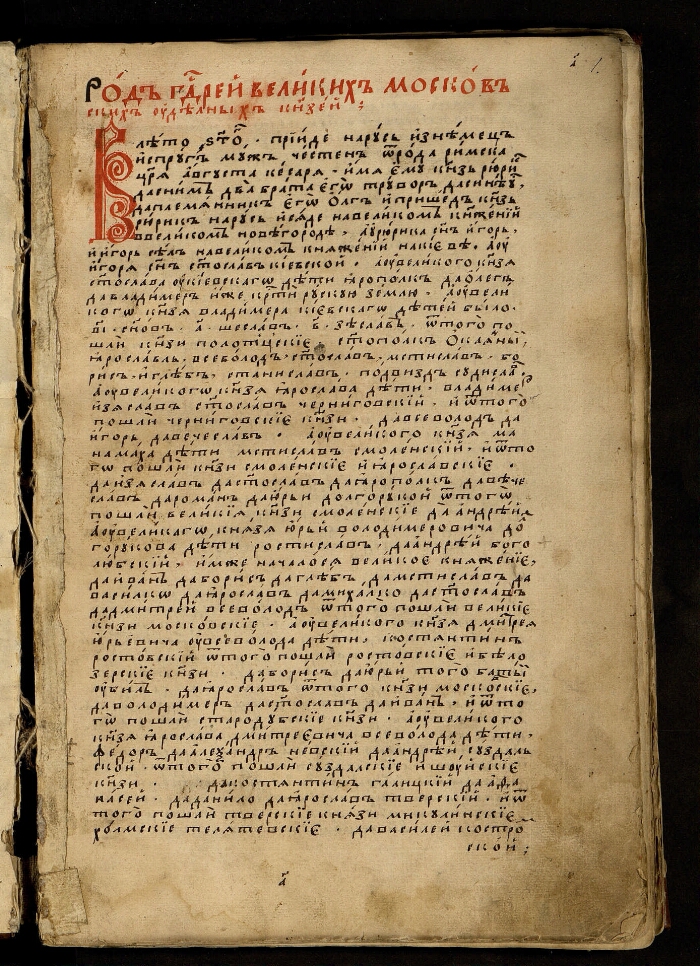 а҃ 1.
Ро́дъ гдⷭ҇рей вели́кихъ моско́въ
скихъ оудѣ́лныхъ кн҃зе́й ;
В лѣто ѕ҃то҃ . прїи́де нарусь изнѣ́мецъ
и́спрусъ мужъ честенъ ѿро́да ри́мска
цр҃я а́вгуста ке́саря . и́мя є́му кн҃зь рю́ри
даснимъ два бра́та єго̀ труворъ дасинеу́,
даплемя́нникъ єго̀ О́лгъ и́прише́дъ кн҃зь
рю́рикъ нарусь исяде навеликомъ кн҃же́нїй
ввели́комъ новѣгоро́де , а́урюрика сн҃ъ и́горь,
и́и́горь сѣ́лъ навели́комъ княже́нїй накїєвѣ . а́оу
и́горя сн҃ъ ст҃осла́въ кїевской . а́оувели́кого кн҃зя
ст҃осла́ва оукїевскагѡ дѣти яропо́лкъ даО́легъ,
давлади́меръ и́же кр҃ти рускую зе́млю . а́оувели
когѡ кн҃зя влади́мера кїєвскагѡ дѣте́й было .
в҃і . сн҃о́въ . а҃ . шесла́въ . в҃ . зѣсла́въ . ѿтого по
шлѝ кн҃зи поло́тцскїє , ст҃опо́лкъ Окая́ный,
яросла́въ, все́володъ, ст҃осла́въ, мстисла́въ . бо
ри́съ, и́глѣбъ, станисла́въ . подви́здъ суди́сла
а́оувели́когѡ кн҃зя яросла́ва дѣ́ти . влади́ме
и́зясла́въ ст҃осла́въ черни́говскїй . и́ѿтого̀
пошлѝ черни́говскїє кн҃зи . давсе́володъ да
и́горь давечесла́въ . а́оувели́кого кн҃зя ма
нама́ха дѣти мстисла́въ смоле́нскїй . и́ѿто
гѡ пошлѝ кн҃зи смоле́нскїє и́яросла́вскїє .
даи́зясла́въ даст҃осла́въ даяропо́лкъ давѣче
сла́въ дарома́нъ даю́рьи долгору́кой ѿтогѡ̀
пошлѝ вели́кїя кн҃зи смоле́нскїе да а́ндрѣ́й
а́оувели́кагѡ кня́зя ю́рья володи́меровича до
горукова дѣ́ти ростисла́въ, даа́ндрѣ́й бого
лю́бскїй, и́мже нача́лося вели́коє княже́нїє,
даи́ва́нъ дабори́съ даглѣ́бъ, дамстисла́въ да
васи́лкѡ даяросла́въ дамиха́лко даст҃осла́въ
дадми́трей все́володъ ѿтого пошлѝ вели́кїє
кн҃зи моско́вскїе . а́оувели́кого кн҃зя дми́трея
ю́рьевича оувсе́волода дѣ́ти, костянти́нъ
росто́вскїй ѿтого̀ пошлѝ росто́вскїє и́бѣло
зе́рскїє кн҃зи . дабори́съ даю́рьи того баты́й
оуби́лъ . даяросла́въ ѿтого кн҃зи моско́скїє,
даволоди́меръ даст҃осла́въ даи́ва́нъ, и́ѿто
го̀ пошлѝ староду́бскїе кн҃зи . а́оувели́кого
кн҃зя яросла́ва дми́трєєвича все́волода дѣти,
фе́доръ даа́леха́ндръ не́вскїй даа́ндрѣ́й су́здаль
ской . ѿтого̀ пошлѝ су́здалскїе и́шо́уйскїє
кн҃зи . дакостянти́нъ га́лицкїй да а́фа
на́сей . дада́нило даяросла́въ тве́рскїй . и́ѿ
того̀ пошлѝ тве́рскїе кня́зи мику́линскїє
хо́лмскїе теля́тевскїє . даваси́лей костро
ско́й ;
а҃